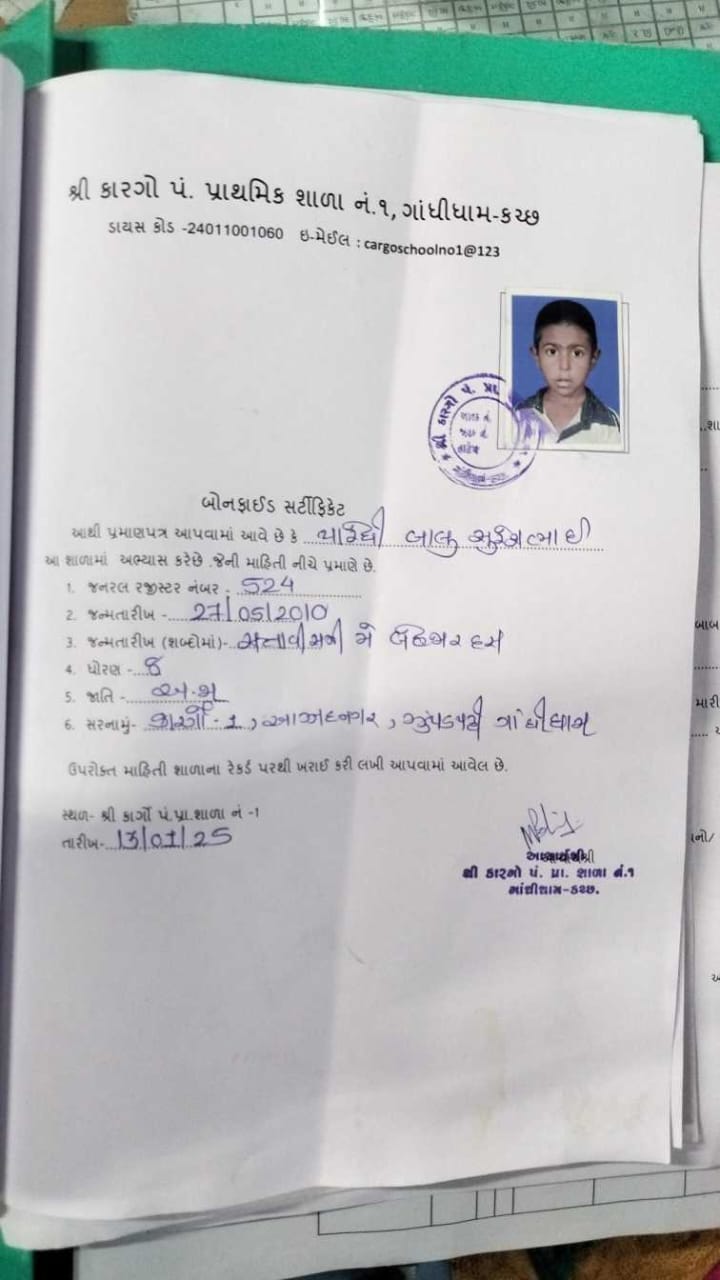 શ્રી કારગો પં. પ્રાથમિક શાળા નં.૧, ગાંધીધામ-કચ્છ
ડાયસ કોડ -24011001060 ઇ-મેઈલ : cargoschoolno1@123
શ્રી કારગો પં. પ્રા
બોનફાઈડ સર્ટીફિકેટ
આથી પ્રમાણપત્ર આપવામાં આવે છે કે પારઘી લાલુ સુરેશભાઈ
આ શાળામાં અભ્યાસ કરેછે .જેની માહિતી નીચે પ્રમાણે છે.
1. જનરલ રજીસ્ટર નંબર - 524
2. જન્મતારીખ - 27/05/2010
3. જન્મતારીખ (શબ્દોમાં)- સત્તાવીસમી મે બેહજાર દસ
4. ધોરણ - 8
5. જાતિ -
6. સરનામું- કાર્ગો-1, આઝાદનગર, ઝુંપડપટ્ટી ગાંધીધામ
ઉપરોક્ત માહિતી શાળાના રેકર્ડ પરથી ખરાઈ કરી લખી આપવામાં આવેલ છે.
સ્થળ- શ્રી કાર્ગો પં.પ્રા.શાળા નં -1
તારીખ- 13/01/25
આચાર્યશ્રી
શ્રી કારગો પં. પ્રા. શાળા નં.૧
ગાંધીધામ-કચ્છ.